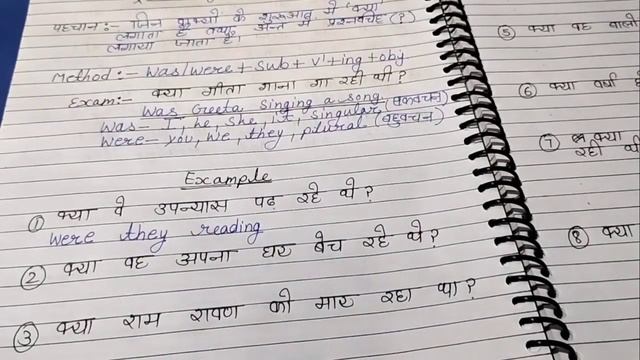 पहचान:- जिन वाक्यों के शुरुआत में "क्या"
लगाता है तथा अन्त में प्रश्नवाचक (?)
लगाया जाता है।
Method:- Was/were + Sub + V¹ + ing + obj
Exam:- क्या गीता गाना गा रही थी?
Was Geeta Singing a song
Was - I, he, she, it, singular (एकवचन)
Were - you, we, they, plural (बहुवचन)
Example
① क्या वे उपन्यास पढ़ रहे थे?
Were they reading
② क्या वह अपना घर बेच रहे थे?
③ क्या राम रावण को मार रहा था?
⑤ क्या वह
⑥ क्या वर्षा
⑦ क्या
रही थी
⑧ क्या